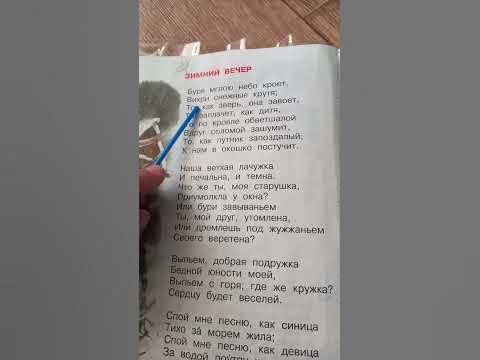 ЗИМНИЙ ВЕЧЕР
Буря мглою небо кроет,
Вихри снежные крутя;
То, как зверь, она завоет,
заплачет, как дитя,
по кровле обветшалой
Вдруг соломой зашумит,
То, как путник запоздалый,
К нам в окошко постучит.
Наша ветхая лачужка
И печальна, и темна.
Что же ты, моя старушка,
Приумолкла у окна?
Или бури завываньем
Ты, мой друг, утомлена,
Или дремлешь под жужжаньем
Своего веретена?
Выпьем, добрая подружка
Бедной юности моей,
Выпьем с горя; где же кружка?
Сердцу будет веселей.
Спой мне песню, как синица
Тихо за́ морем жила;
Спой мне песню, как девица
За водой